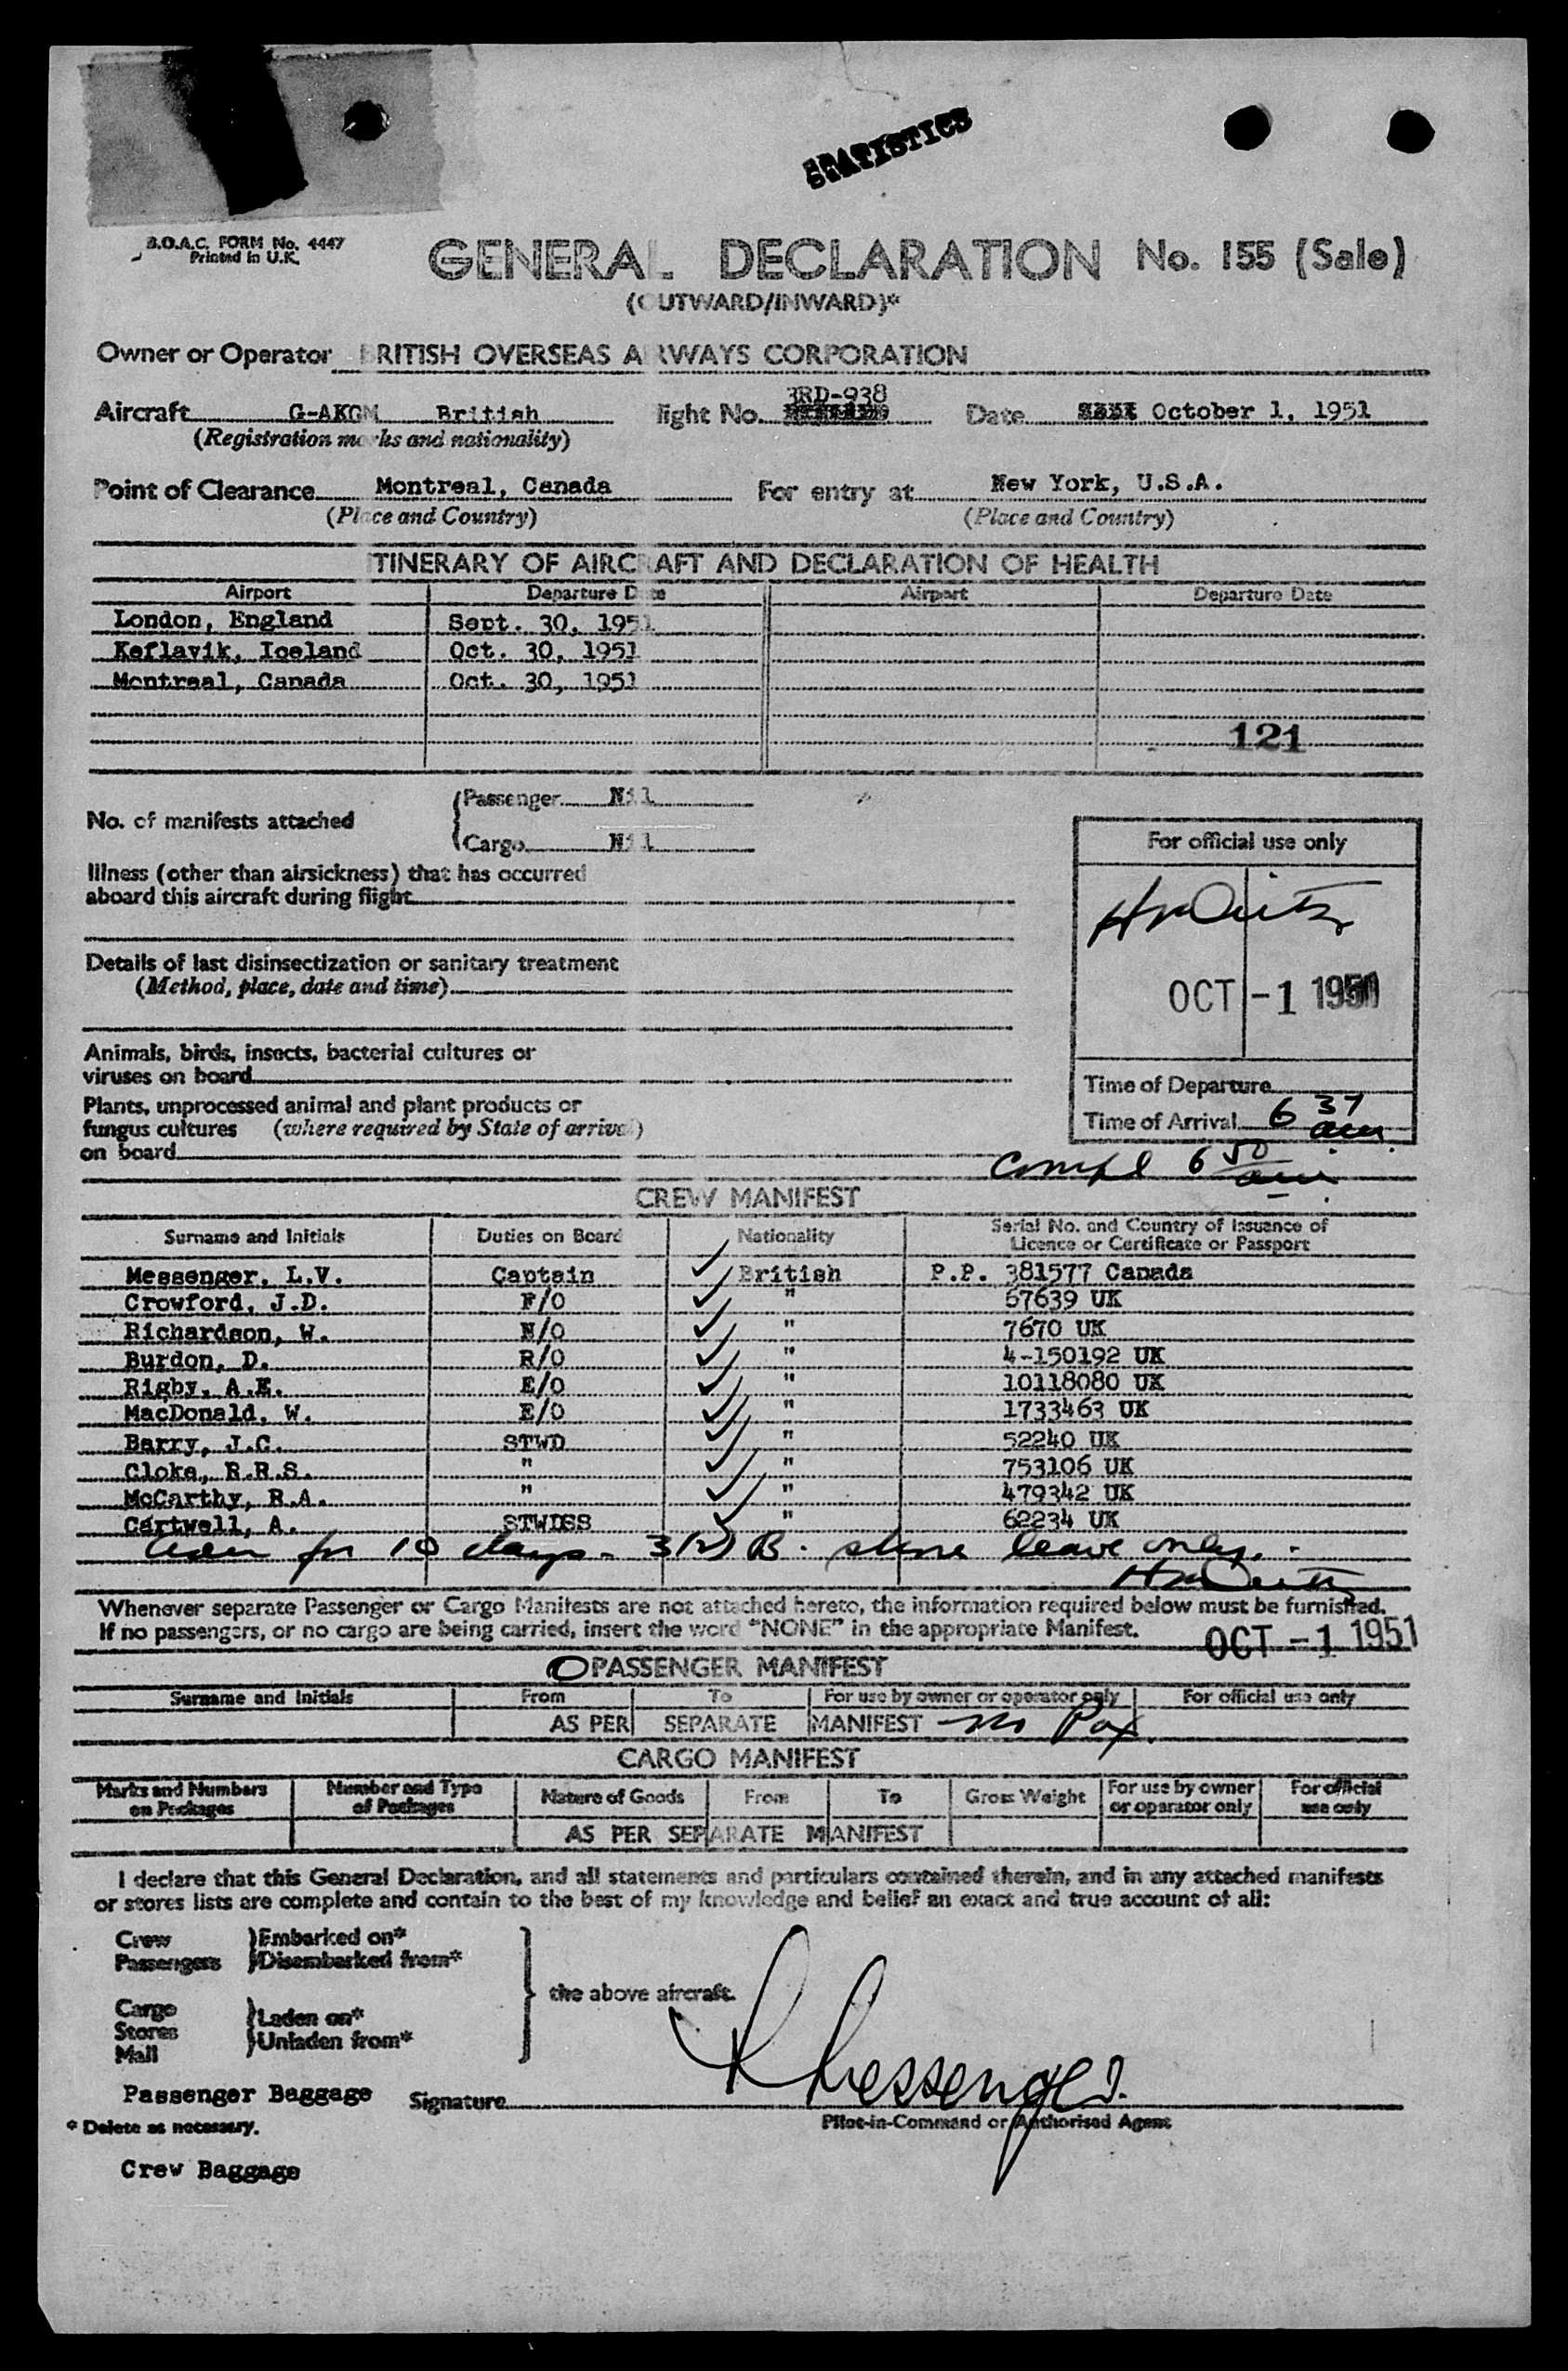 STATISTICS
B.O.A.C. FORM No. 4447
Printed in U.K.
GENERAL DECLARATION No. 155 (Sale)
(OUTWARD/INWARD)*
Owner or Operator BRITISH OVERSEAS AIRWAYS CORPORATION
3RD-938
Aircraft G-AKGM British light No. Date October 1, 1951
(Registration marks and nationality)
Point of Clearance Montreal, Canada For entry at New York, U.S.A.
(Place and Country) (Place and Country)
ITINERARY OF AIRCRAFT AND DECLARATION OF HEALTH
Airport Departure Date Airport Departure Date
London, England Sept. 30, 1951
Keflavik, Iceland Oct. 30, 1951
Montreal, Canada Oct. 30, 1951
121
No. of manifests attached
Passenger Nil
Cargo Nil
For official use only
Illness (other than airsickness) that has occurred
aboard this aircraft during flight
OCT -1 1951
Details of last disinsectization or sanitary treatment
(Method, place, date and time)
Animals, birds, insects, bacterial cultures or
viruses on board
Time of Departure
Plants, unprocessed animal and plant products or
fungus cultures (where required by State of arrival)
on board
Time of Arrival 6 37 am
Compl 6 50 am
CREW MANIFEST
Surname and Initials Duties on Board Nationality Serial No. and Country of Issuance of
Licence or Certificate or Passport
Messenger, L.V. Captain British P.P. 381577 Canada
Crowford, J.D. F/O " 67639 UK
Richardson, W. N/O " 7670 UK
Burdon, D. R/O " 4-150192 UK
Rigby, A.E. E/O " 10118080 UK
MacDonald, W. E/O " 1733463 UK
Barry, J.C. STWD " 52240 UK
Cloke, R.R.S. " " 753106 UK
McCarthy, R.A. " " 479342 UK
Cartwell, A. STWDSS " 62234 UK
for 10 days - 3(2) B. shore leave only.
Whenever separate Passenger or Cargo Manifests are not attached hereto, the information required below must be furnished.
If no passengers, or no cargo are being carried, insert the word "NONE" in the appropriate Manifest.
OCT -1 1951
PASSENGER MANIFEST
Surname and Initials From To For use by owner or operator only For official use only
AS PER SEPARATE MANIFEST no Pax
CARGO MANIFEST
Marks and Numbers on Packages Number and Type of Packages Nature of Goods From To Gross Weight For use by owner or operator only For official use only
AS PER SEPARATE MANIFEST
I declare that this General Declaration, and all statements and particulars contained therein, and in any attached manifests
or stores lists are complete and contain to the best of my knowledge and belief an exact and true account of all:
Crew Embarked on*
Passengers Disembarked from*
the above aircraft.
Cargo
Stores
Mail
Laden on*
Unladen from*
Passenger Baggage
Signature Messenger
Pilot-in-Command or Authorised Agent
* Delete as necessary.
Crew Baggage